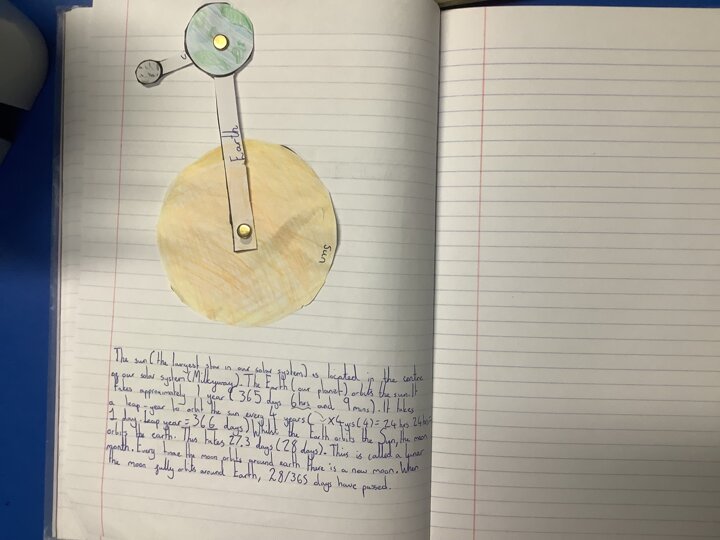 Earth
Sun
The sun (the largest star in our solar system) is located in the centre
of our solar system (Milkyway). The Earth (our planet) orbits the sun. It
takes approximately 1 year (365 days 6 hrs and 9 mins). It takes
a leap-year to orbit the sun every 4 years ( x4yrs(4) = 24 hrs 24hrs=
1 day leap year = 366 days) Whilst the Earth orbits the Sun, the moon
orbits the earth. This takes 27.3 days (28 days). This is called a lunar
month. Every time the moon orbits around earth there is a new moon. When
the moon fully orbits around Earth, 28/365 days have passed.